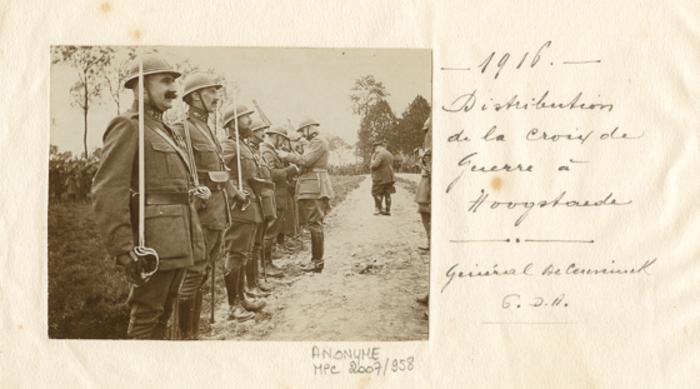 — 1916. —
Distribution
de la Croix de
Guerre à
Hoogstaede
Général De Ceuninck
6. D.A.
ANONYME
MPC 2007/958